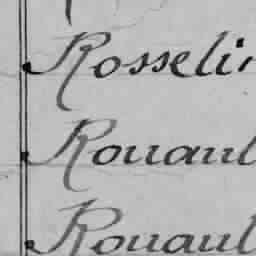 Rosselin
Rouaul
Rouaul